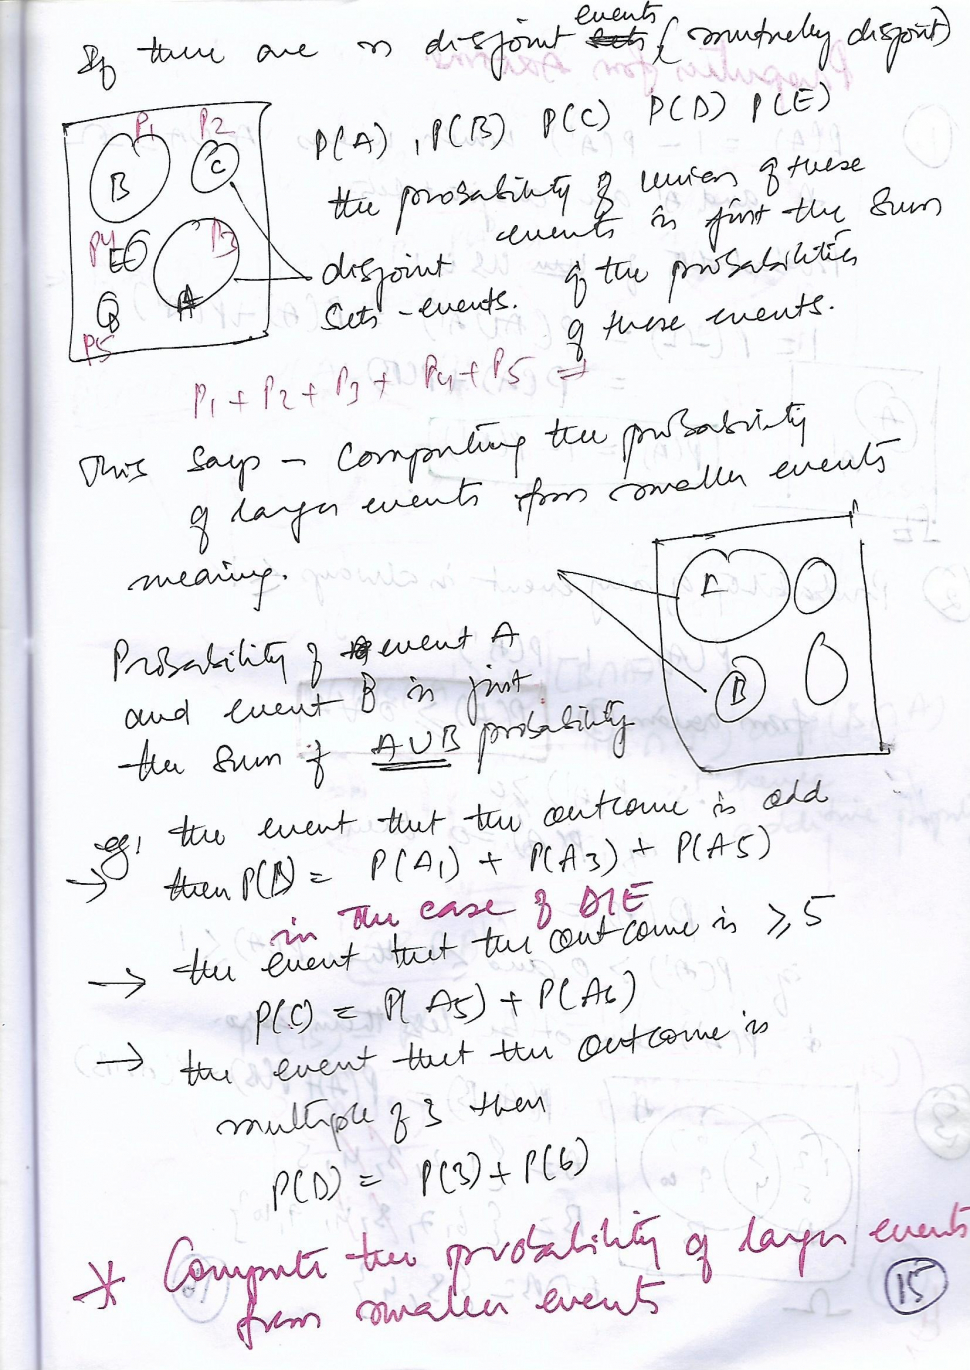 If there are n disjoint events (mutually disjoint)
P(A), P(B) P(C) P(D) P(E)
P1 P2
B C
the probability of union of these
events is just the sum
P4 E P3
disjoint of the probabilities
A
sets - events. of these events.
P5
P1 + P2 + P3 + P4 + P5 =
This says - Computing the probability
of larger events from smaller events
meaning.
Probability of event A
B
and event B is just
the sum of A∪B probability
eg, the event that the outcome is odd
→ then P(B) = P(A1) + P(A3) + P(A5)
in the case of DIE
→ the event that the outcome is ≥ 5
P(C) = P(A5) + P(A6)
→ the event that the outcome is
multiple of 3 then
P(D) = P(3) + P(6)
* Compute the probability of larger events
from smaller events
15